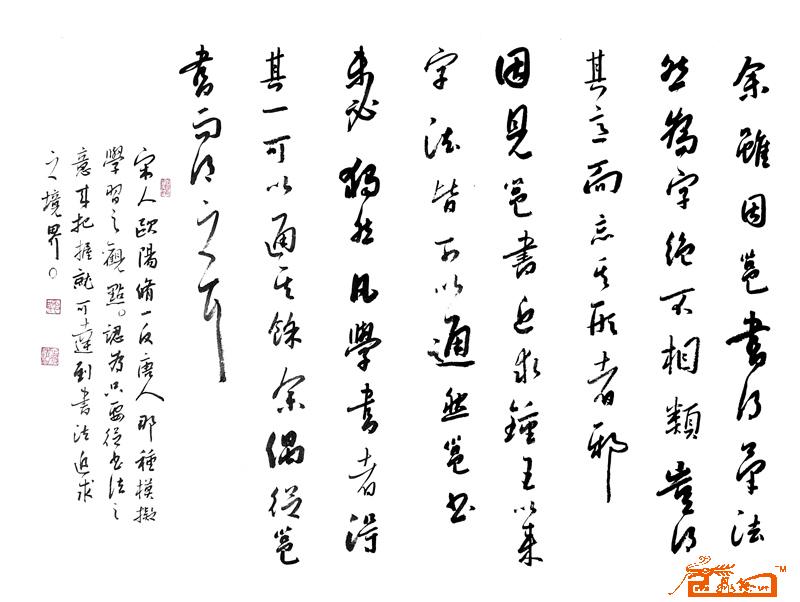 余雖因邕書得筆法
然為字絕不相類豈得
其意而忘其形者邪
因見邕書追求鍾王以來
字法皆可以通然邕書
未必獨然凡學書者得
其一可以通其餘余偶從邕
書而得之耳
宋人歐陽脩一反唐人那種模擬
學習之觀點。認為只要從書法之
意來把握就可達到書法追求
之境界。